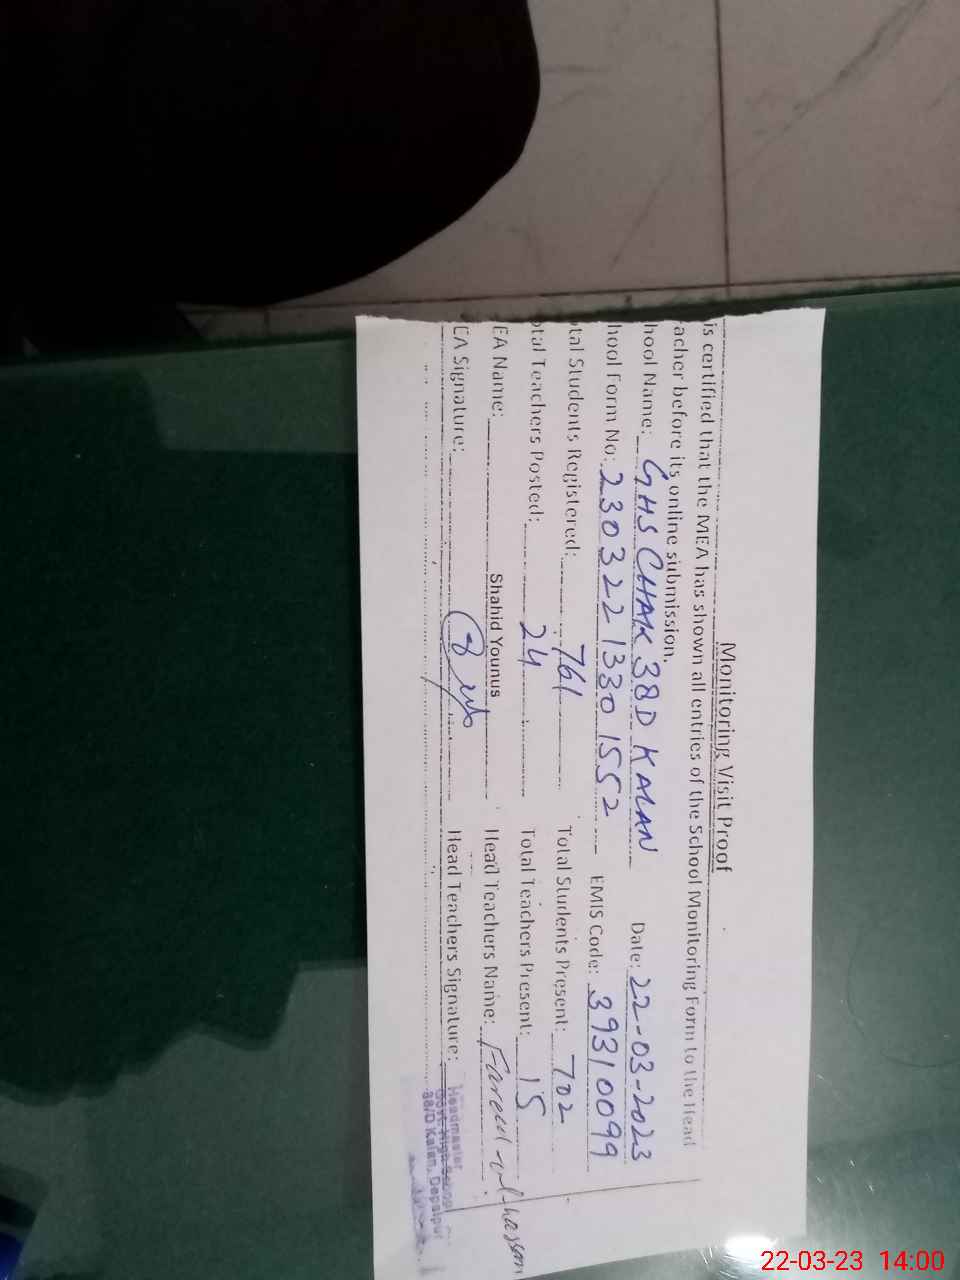 Monitoring Visit Proof
is certified that the MEA has shown all entries of the School Monitoring Form to the Head
acher before its online submission.
hool Name: GHS CHAK 38D KALAN Date: 22-03-2023
hool Form No: 230322 1330 1552 EMIS Code: 39310099
otal Students Registered: 761 Total Students Present: 702
otal Teachers Posted: 24 Total Teachers Present: 15
EA Name: Shahid Younus Head Teachers Name: Fareed ul-hassan
EA Signature: Head Teachers Signature:
Headmaster
Govt. High School
38/D Kalan, Depalpur
22-03-23 14:00